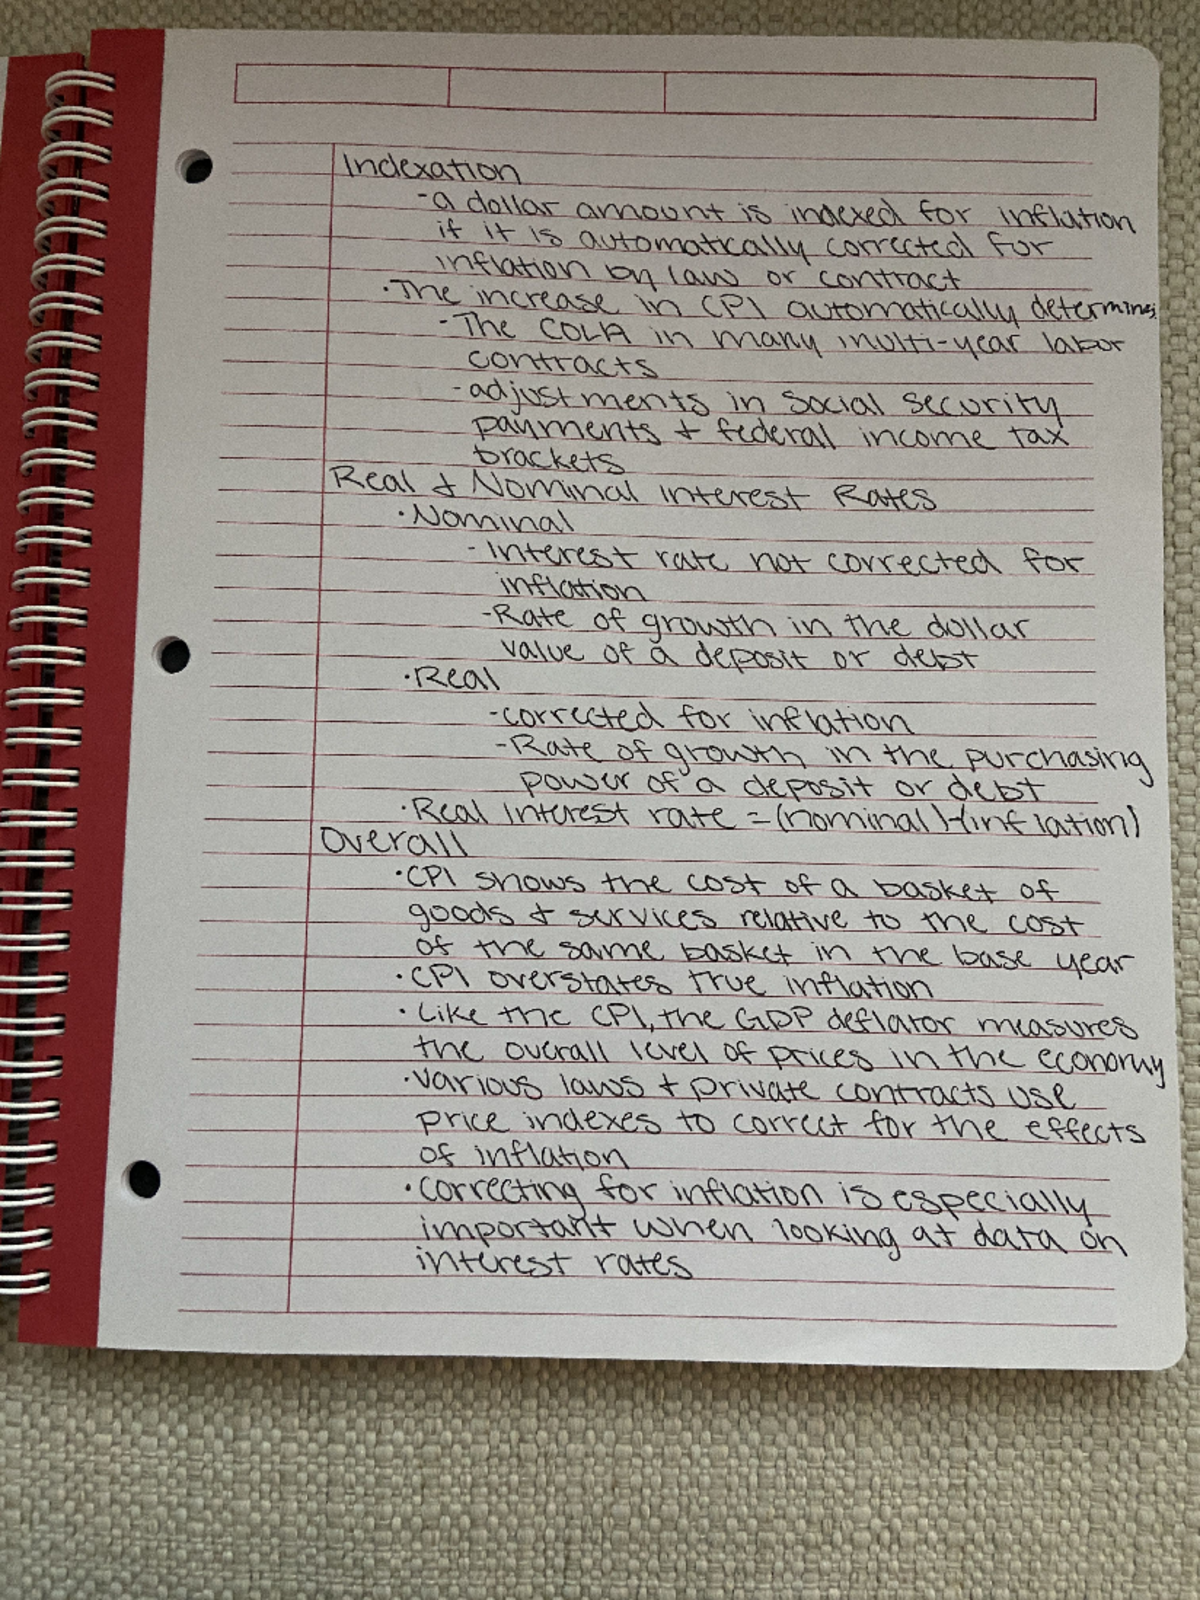 Indexation
-a dollar amount is indexed for inflation
if it is automatically corrected for
inflation by law or contract
·The increase in CPI automatically determines
-The COLA in many multi-year labor
contracts
-adjustments in social security
payments + federal income tax
brackets
Real + Nominal interest Rates
·Nominal
-interest rate not corrected for
inflation
-Rate of growth in the dollar
value of a deposit or debt
·Real
-corrected for inflation
-Rate of growth in the purchasing
power of a deposit or debt
·Real interest rate = (nominal)-(inflation)
Overall
·CPI shows the cost of a basket of
goods + services relative to the cost
of the same basket in the base year
·CPI overstates true inflation
·Like the CPI, the GDP deflator measures
the overall level of prices in the economy
·Various laws + private contracts use
price indexes to correct for the effects
of inflation
·Correcting for inflation is especially
important when looking at data on
interest rates